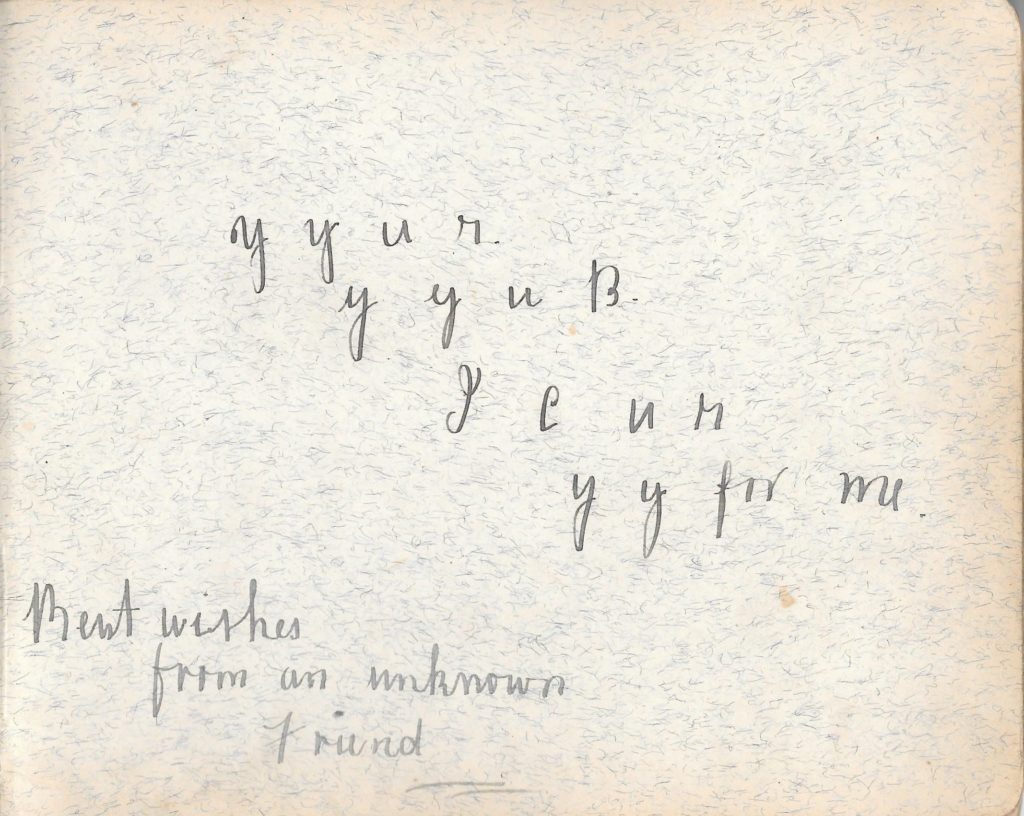 y y u r.
y y u B.
I c u r
y y for me.
Best wishes
from an unknown
Friend